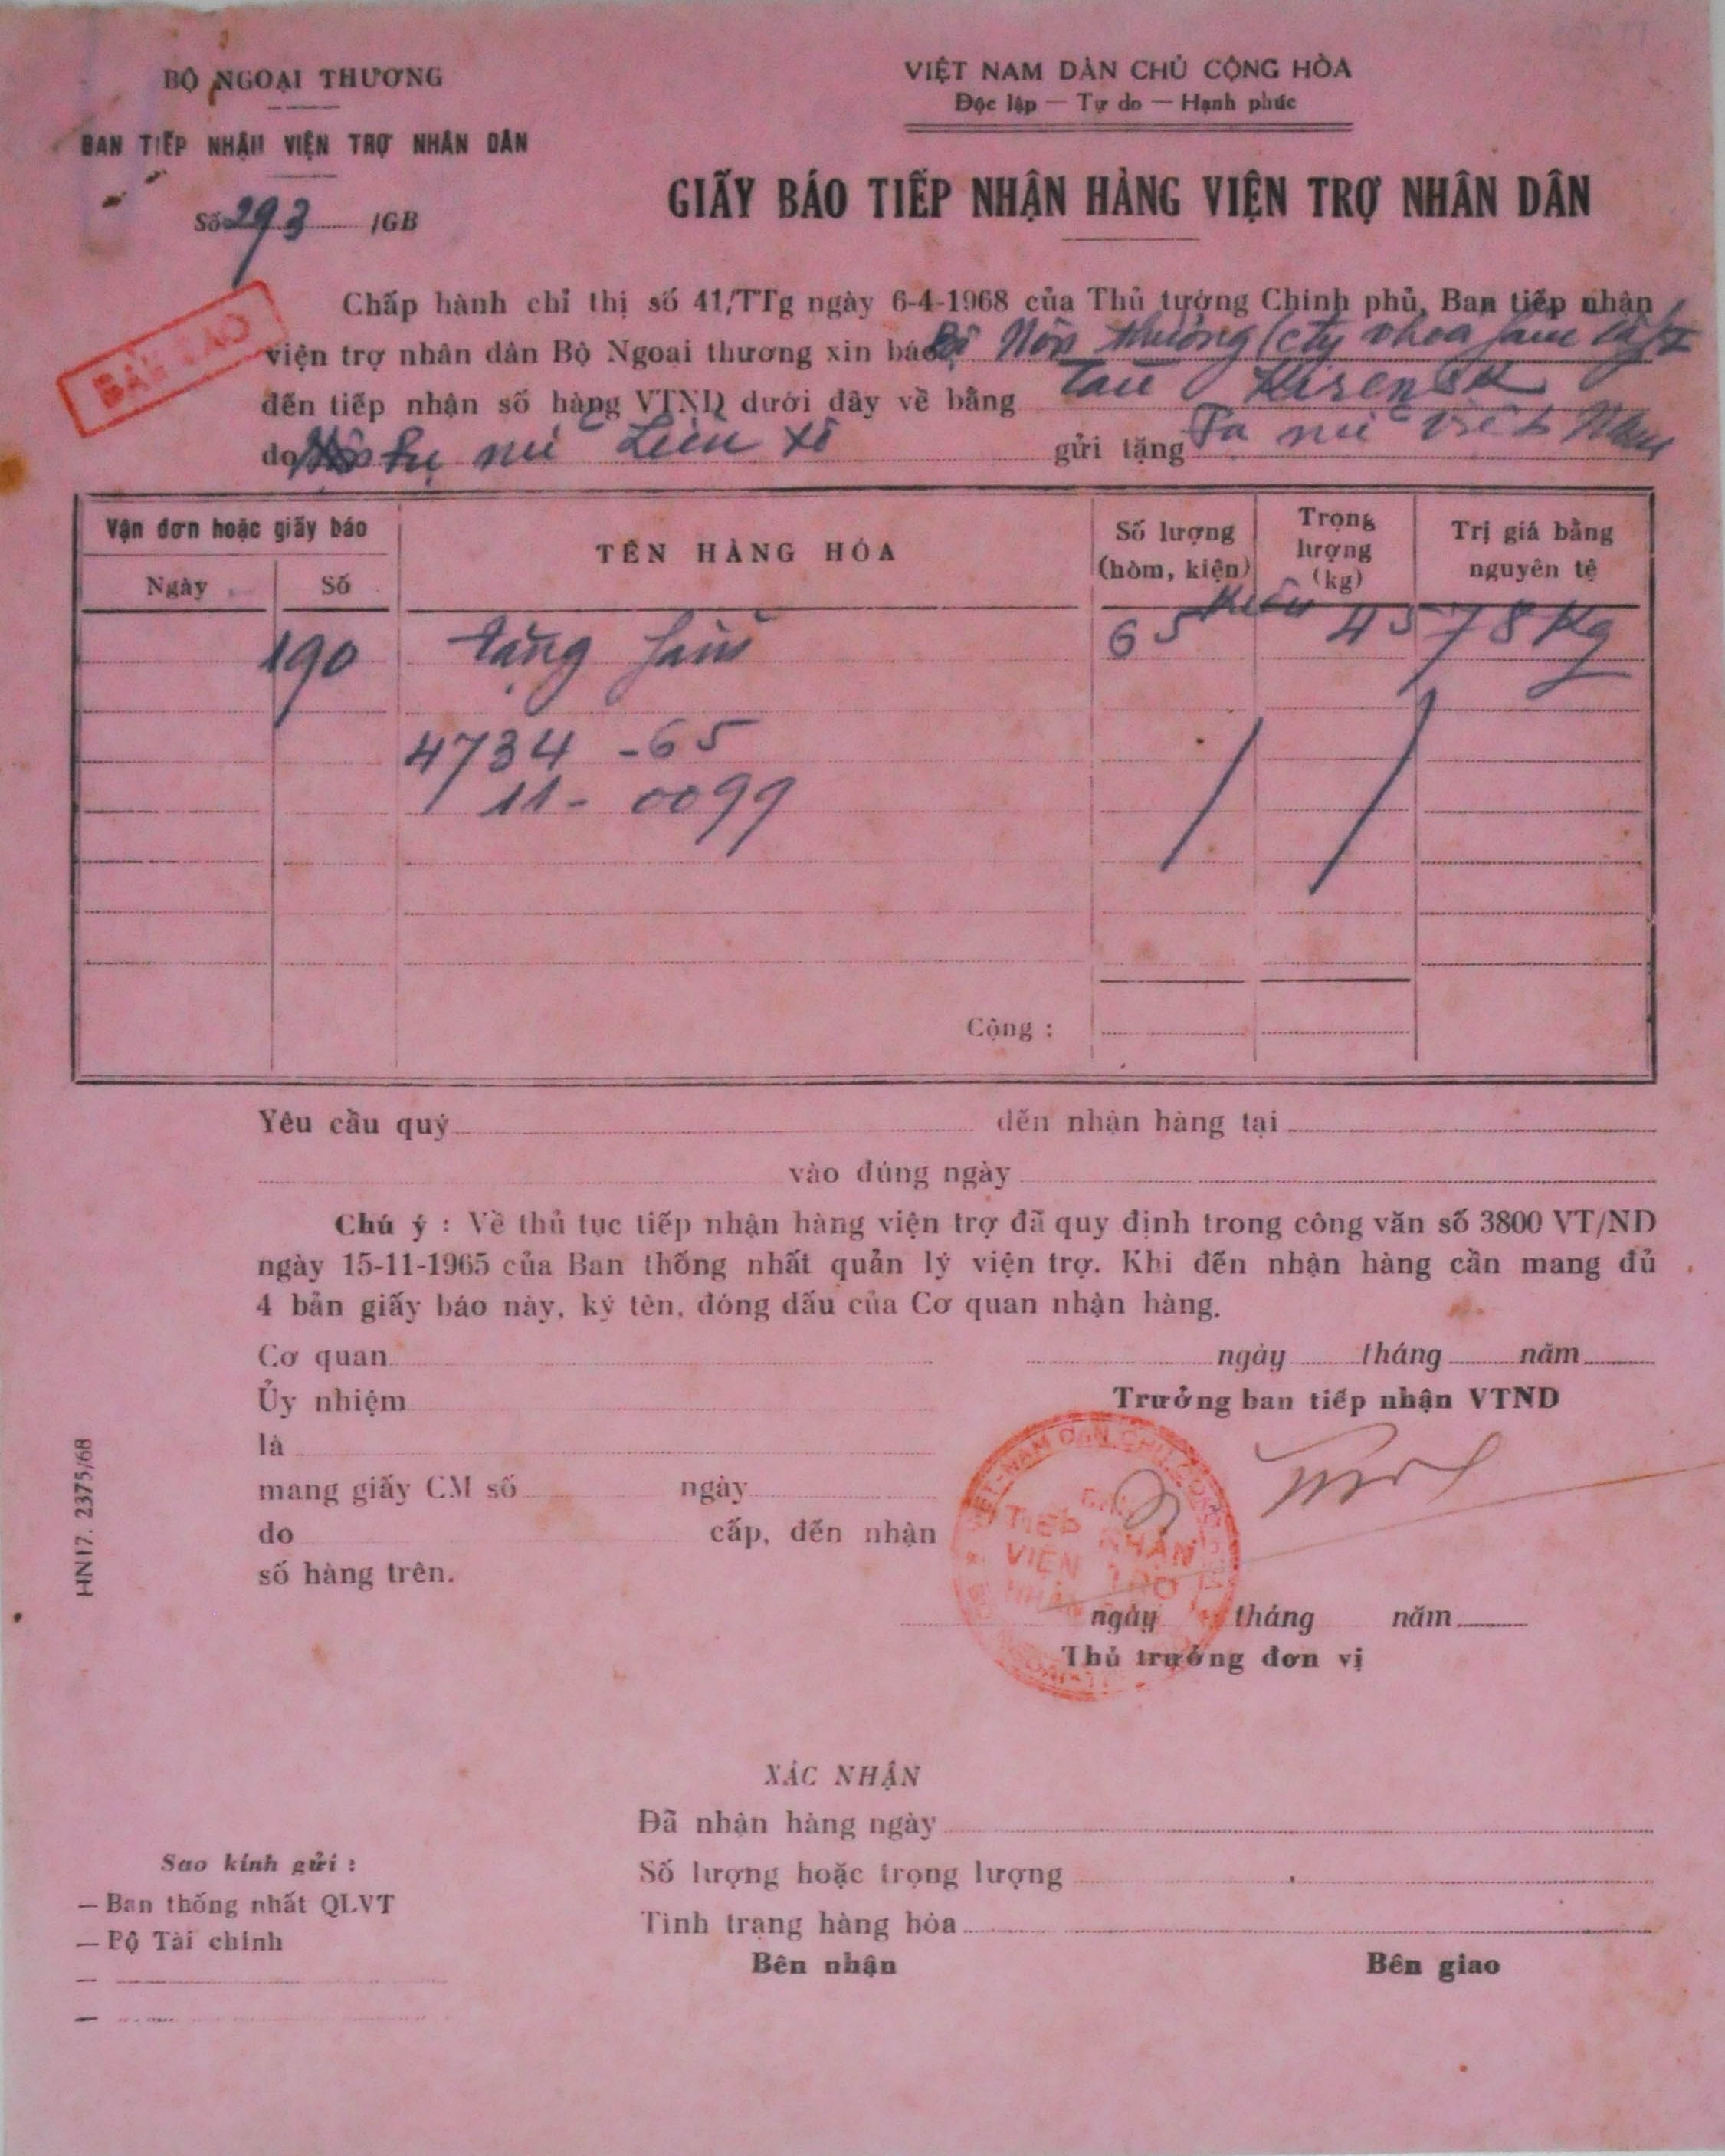 BỘ NGOẠI THƯƠNG
BAN TIẾP NHẬN VIỆN TRỢ NHÂN DÂN
Số 293 /GB
VIỆT NAM DÂN CHỦ CỘNG HÒA
Độc lập — Tự do — Hạnh phúc
GIẤY BÁO TIẾP NHẬN HÀNG VIỆN TRỢ NHÂN DÂN
BẢN SAO
Chấp hành chỉ thị số 41/TTg ngày 6-4-1968 của Thủ tướng Chính phủ, Ban tiếp nhận
viện trợ nhân dân Bộ Ngoại thương xin báo Bộ Nội thương (cty
đến tiếp nhận số hàng VTND dưới đây về bằng tàu
do nữ Liên Xô gửi tặng nữ Việt Nam
Vận đơn hoặc giấy báo
Ngày Số
TÊN HÀNG HÓA
Số lượng (hòm, kiện)
Trọng lượng (kg)
Trị giá bằng nguyên tệ
190 tặng fẩm 65 kiện 4578 Kg
4734 - 65
11 - 0099
Cộng :
Yêu cầu quý đến nhận hàng tại
vào đúng ngày
Chú ý : Về thủ tục tiếp nhận hàng viện trợ đã quy định trong công văn số 3800 VT/ND
ngày 15-11-1965 của Ban thống nhất quản lý viện trợ. Khi đến nhận hàng cần mang đủ
4 bản giấy báo này, ký tên, đóng dấu của Cơ quan nhận hàng.
Cơ quan
Ủy nhiệm
là
mang giấy CM số ngày
do cấp, đến nhận
số hàng trên.
ngày tháng năm
Trưởng ban tiếp nhận VTND
VIỆT-NAM DÂN CHỦ CỘNG
BAN
TIẾP NHẬN
VIỆN TRỢ
NHÂN
ngày tháng năm
Thủ trưởng đơn vị
HN17. 2375/68
XÁC NHẬN
Đã nhận hàng ngày
Số lượng hoặc trọng lượng
Tình trạng hàng hóa
Bên nhận Bên giao
Sao kính gửi :
— Ban thống nhất QLVT
— Bộ Tài chính
—
—